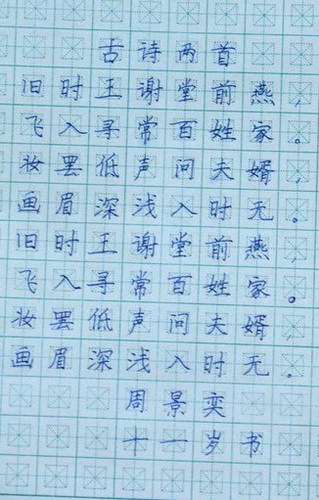 古诗两首
旧时王谢堂前燕，
飞入寻常百姓家。
妆罢低声问夫婿，
画眉深浅入时无。
旧时王谢堂前燕，
飞入寻常百姓家。
妆罢低声问夫婿，
画眉深浅入时无．
周景奕
十一岁书